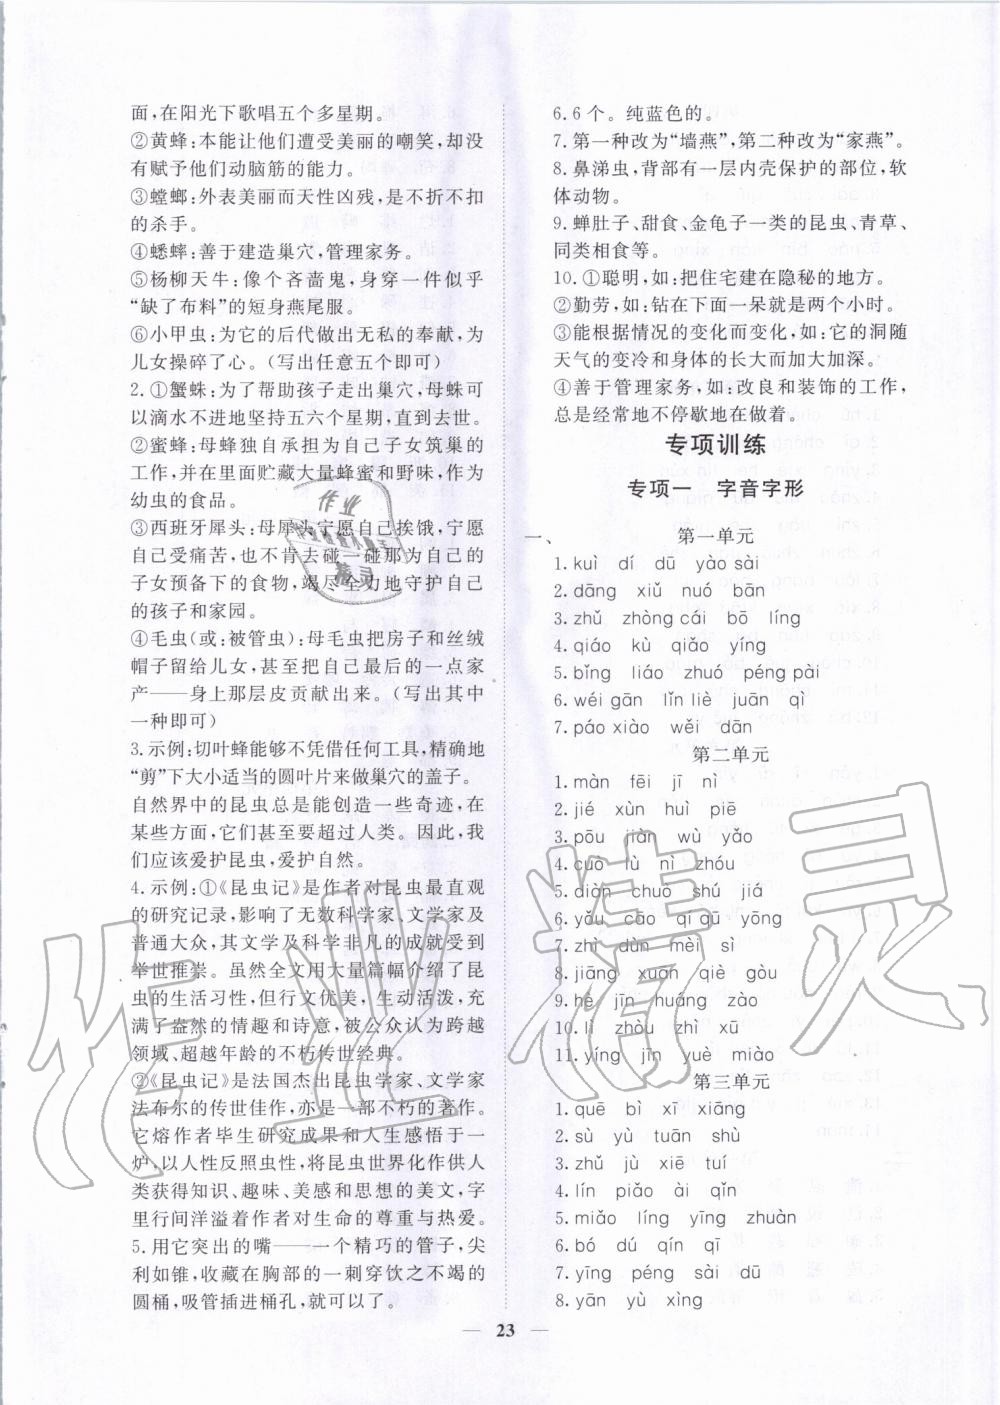 面,在阳光下歌唱五个多星期。
②黄蜂:本能让他们遭受美丽的嘲笑,却没
有赋予他们动脑筋的能力。
③螳螂:外表美丽而天性凶残,是不折不扣
的杀手。
④蟋蟀:善于建造巢穴,管理家务。
⑤杨柳天牛:像个吝啬鬼,身穿一件似乎
“缺了布料”的短身燕尾服。
⑥小甲虫:为它的后代做出无私的奉献,为
儿女操碎了心。(写出任意五个即可)
2. ①蟹蛛:为了帮助孩子走出巢穴,母蛛可
以滴水不进地坚持五六个星期,直到去世。
②蜜蜂:母蜂独自承担为自己子女筑巢的
工作,并在里面贮藏大量蜂蜜和野味,作为
幼虫的食品。
③西班牙犀头:母犀头宁愿自己挨饿,宁愿
自己受痛苦,也不肯去碰一碰那些为自己
子女预备下的食物,竭尽全力守护自己
的孩子和家园。
④毛虫(或:被管虫):母毛虫把房子和丝绒
帽子留给儿女,甚至把自己最后的一点家
产——身上那层皮贡献出来。(写出其中
一种即可)
3. 示例:切叶蜂能够不凭借任何工具,精确地
“剪”下大小适当的圆叶片来做巢穴的盖子。
自然界中的昆虫总是能创造一些奇迹,在
某些方面,它们甚至要超过人类。因此,我
们应该爱护昆虫,爱护自然。
4. 示例:①《昆虫记》是作者对昆虫最直观
的研究记录,影响了无数科学家、文学家及
普通大众,其文学及科学非凡的成就受到
举世推崇。虽然全文用大量篇幅介绍了昆
虫的生活习性,但行文优美,生动活泼,充
满了盎然的情趣和诗意,被公众认为跨越
领域、超越年龄的不朽传世经典。
②《昆虫记》是法国杰出昆虫学家、文学家
法布尔的传世佳作,亦是一部不朽的著作。
它熔作者毕生研究成果和人生感悟于一
炉,以人性反照虫性,将昆虫世界化作供人
类获得知识、趣味、美感和思想的美文,字
里行间洋溢着作者对生命的尊重与热爱。
5. 用它突出的嘴——一个精巧的管子,尖
利如锥,收藏在胸部的一刺穿饮之不竭的
圆桶,吸管插进桶孔,就可以了。
6. 6个。纯蓝色的。
7. 第一种改为“墙燕”,第二种改为“家燕”。
8. 鼻涕虫,背部有一层内壳保护的部位,软
体动物。
9. 蝉肚子、甜食、金龟子一类的昆虫、青草、
同类相食等。
10. ①聪明,如:把住宅建在隐秘的地方。
②勤劳,如:钻在下面一呆就是两个小时。
③能根据情况的变化而变化,如:它的洞随
天气的变冷和身体的长大而加大加深。
④善于管理家务,如:改良和装饰的工作,
总是经常地不停歇地在做着。
专项训练
专项一 字音字形
一、 第一单元
1. kuì dí dū yào sài
2. dāng xiǔ nuó bān
3. zhǔ zhòng cái bō líng
4. qiáo kù qiǎo yíng
5. bǐng liáo zhuó péng pài
6. wéi gān lǐn liè juān qì
7. páo xiào wěi dān
第二单元
1. màn fēi jī nì
2. jié xùn huì piē
3. pōu jiàn wù yǎo
4. cuò lù nì zhóu
5. diàn chuō shú jiá
6. yǎu cāo qì qū yōng
7. zhì dùn mèi sì
8. jiāng xuān qiè gòu
9. hé jīn huáng zào
10. lì zhòu zhì xū
11. yíng jīn yuè miào
第三单元
1. quē bì xī xiāng
2. sù yù tuān shù
3. zhǔ jù xiē tuí
4. lín piǎo ài qǐn
5. miǎo líng yīng zhuàn
6. bó dú qín qī
7. yīng péng sài dū
8. yān yù xìng
23
作业精灵